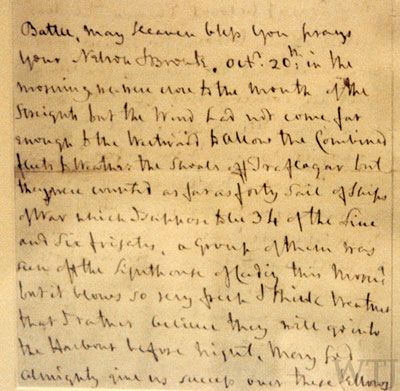 Battle, may Heaven bless you prays
your Nelson & Bronte. Octr. 20th. in the
morning we were close to the mouth of the
Streights but the Wind had not come far
enough to the Westward to allow the Combined
fleets to Weather the Shoals off Traflagar but
they were counted as far as forty Sail of Ships
of War which I suppose to be 34 of the Line
and Six frigates, a group of them was
seen off the Lighthouse of Cadiz this Morng
but it blows so very fresh I think weather
that I rather believe they will go into
the Harbour before night, May God
Almighty give us success over these fellows
WTJ